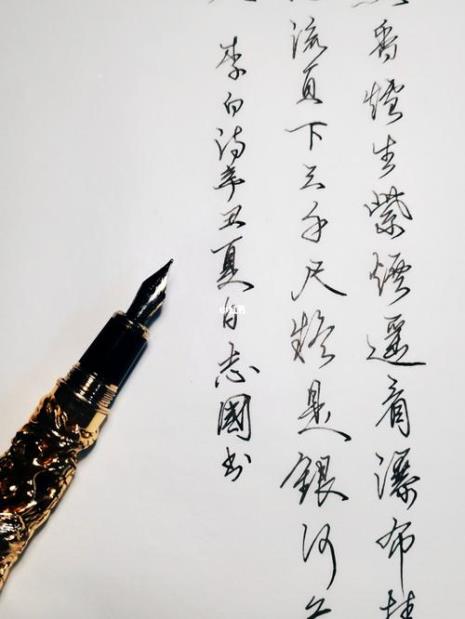 香爐生紫煙遥看瀑布挂
流直下三千尺疑是銀河
李白诗辛丑夏白志國书